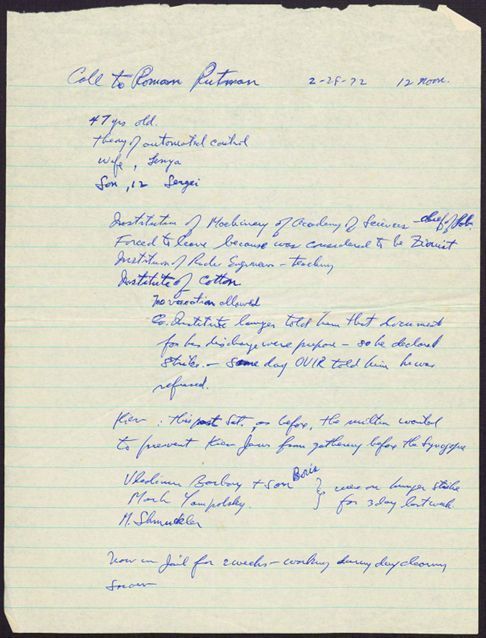 Call to Roman Rutman 2-28-72 12 noon.
47 yrs old.
theory of automated control
wife, Lenya
Son, 12 Sergei
Institution of Machinery of Academy of Sciences - chief of lab.
Forced to leave because was considered to be Zionist
Institution of Radio Engineers - teaching
Institute of Cotton
no vacation allowed
Institute lawyer told him that document
for his discharge were prepare - so he declared
strike. - Same day OVIR told him he was
refused.
Kiev: this past Sat. as before, the militia wanted
to prevent Kiev Jews from gathering before the Synagogue
Vladimir Borboy + son Boris
Mark Yampolsky
M. Shmukler
were on hunger strike
for 3 day last week
Now in jail for 2 weeks - working during day cleaning
snow